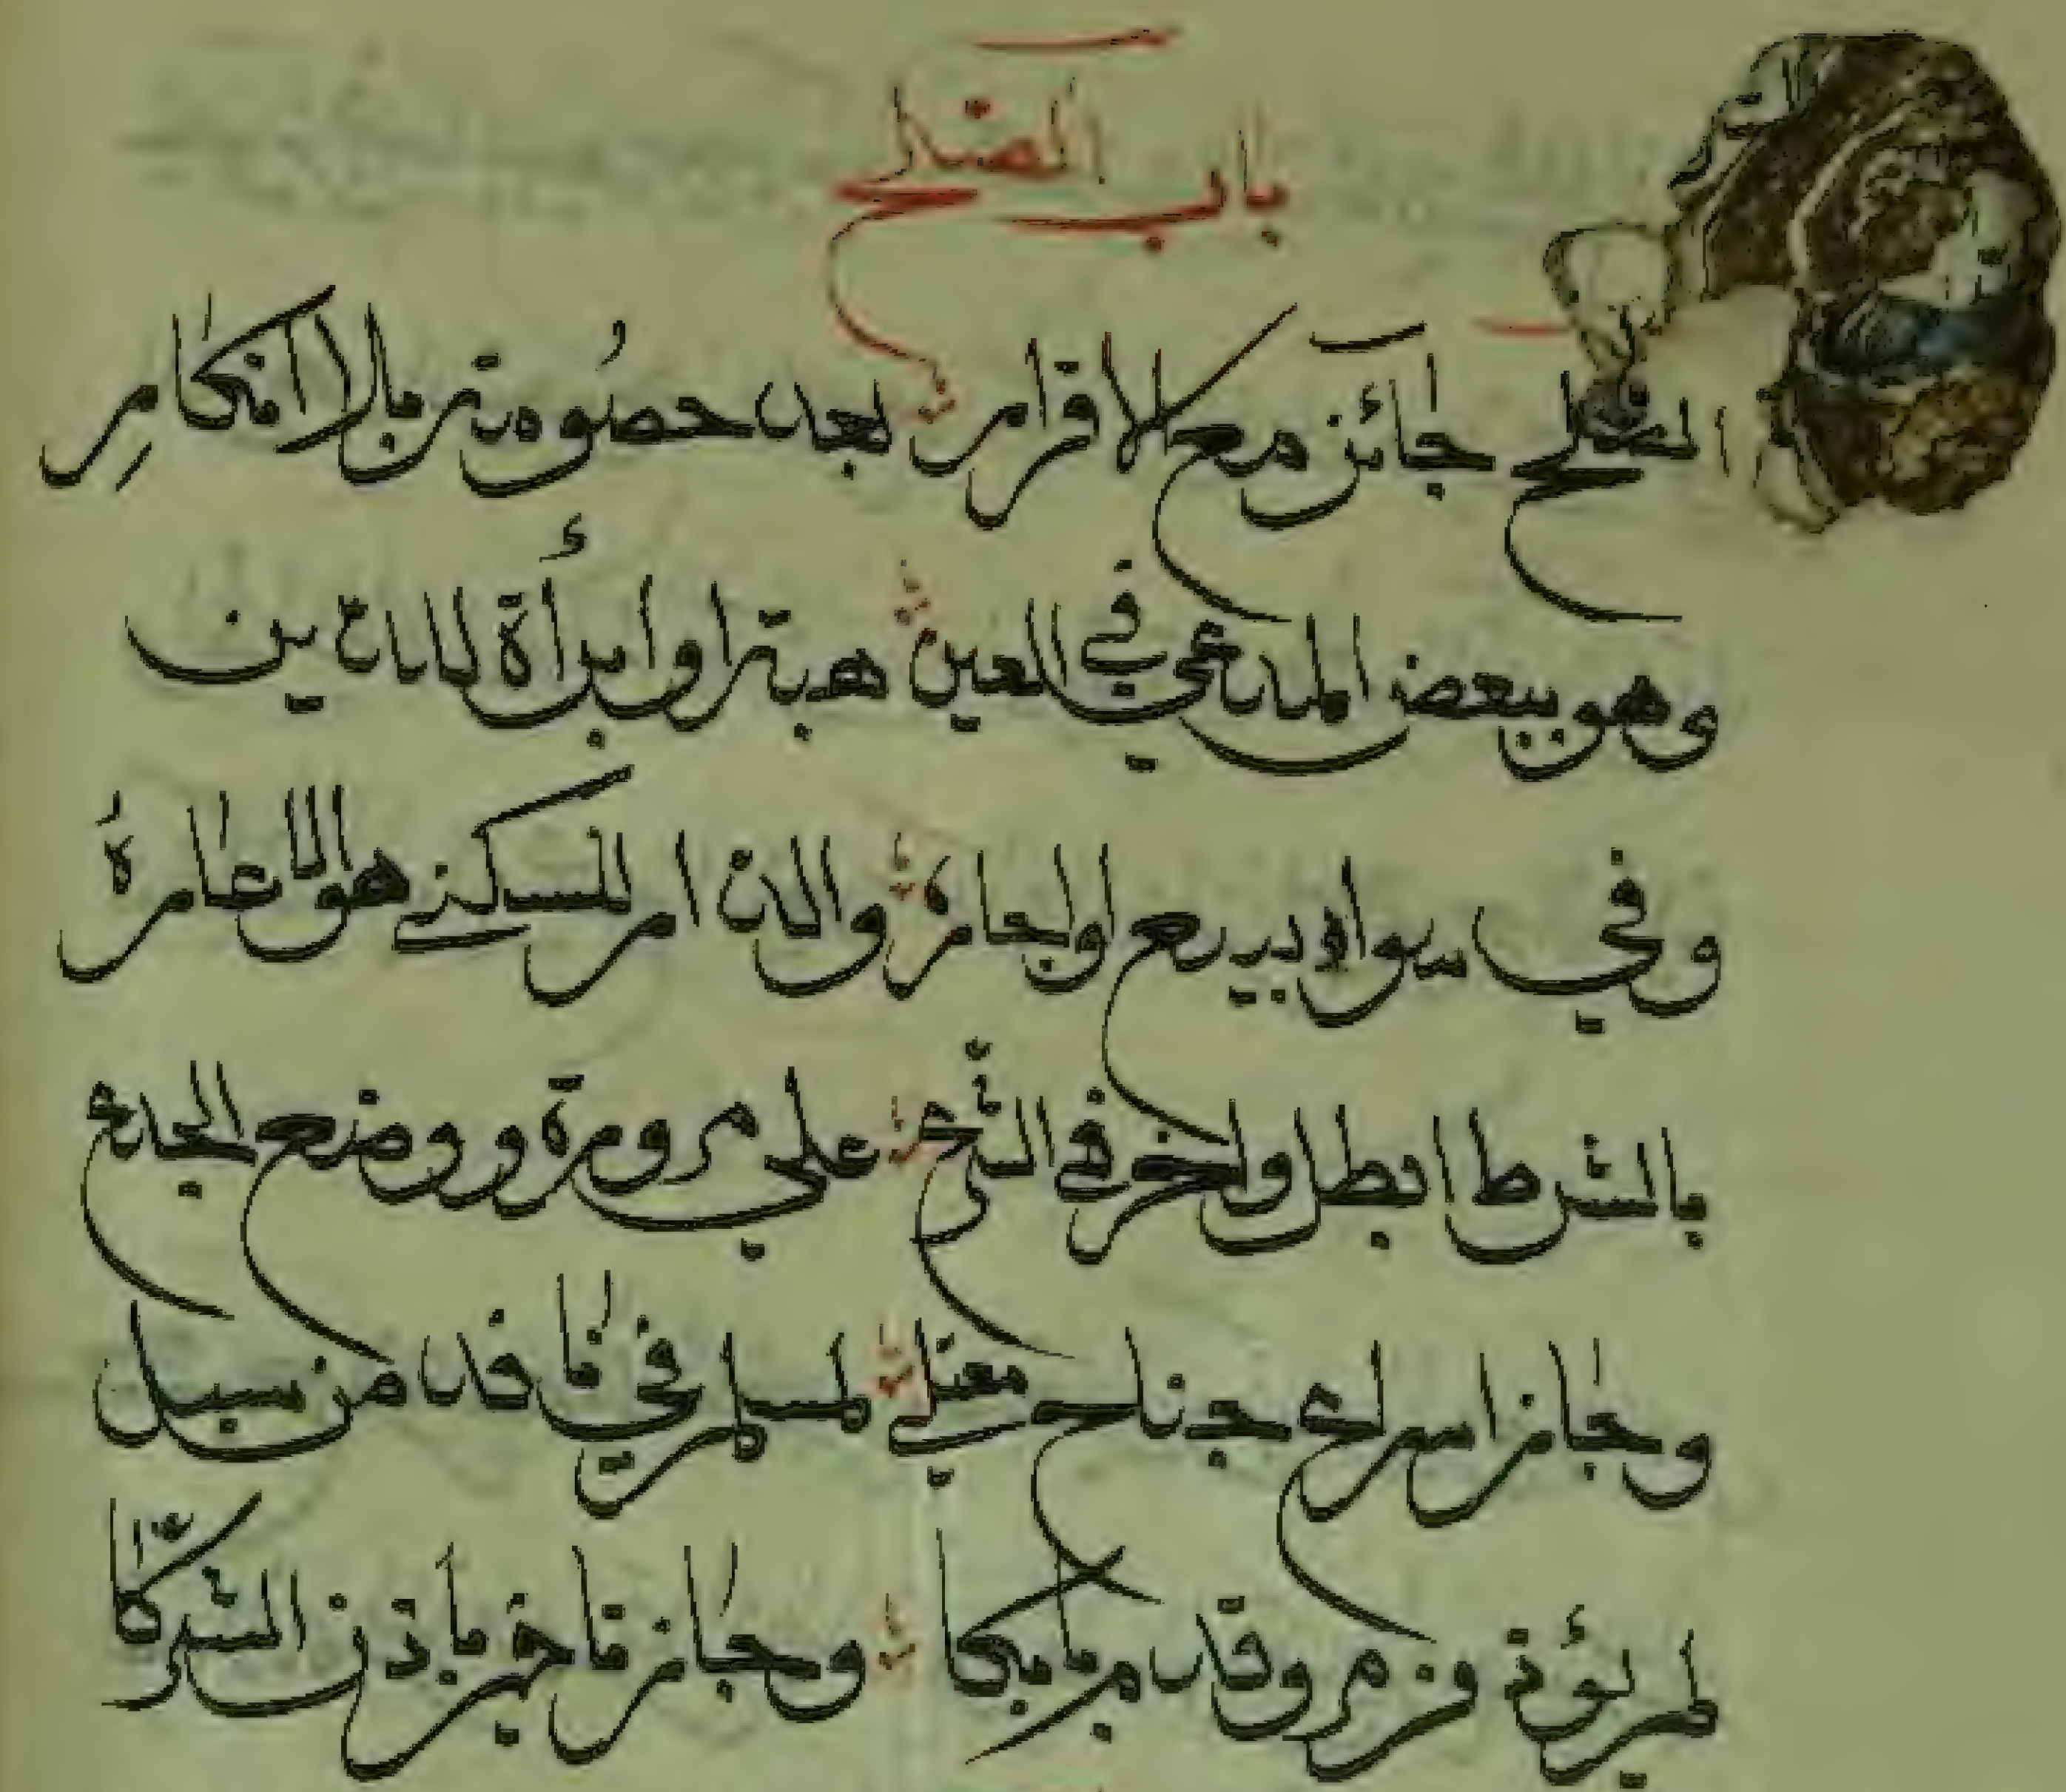 باب الصلح
الصلح جائز مع الاقرار بعد خصومة بلا انكار
وهو ببعض المدعى في العين هبة او ابرأة للدين
وفي سواه بيع او اجاره والدار للسكنى هو الاعاره
بالشرط ابطل واجز في الشرع على مروره ووضع الجذع
وجاز اشراع جناح معتلي لمسلم في نافذ من سبل
لم يؤذ من وقد مر بابكا وجاز تاخير باذن الشركا